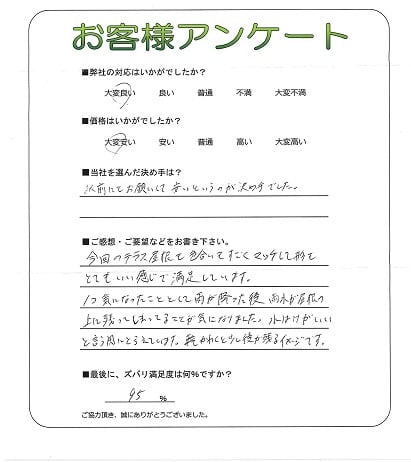 お客様アンケート
■弊社の対応はいかがでしたか?
大変良い 良い 普通 不満 大変不満
■価格はいかがでしたか?
大変安い 安い 普通 高い 大変高い
■当社を選んだ決め手は?
以前にもお願いして安いというのが決め手でした。
■ご感想・ご要望などをお書き下さい。
今回のテラス屋根も色合いですごくマッチして形も
とてもいい感じで満足しています。
1つ気になったこととして雨が降った後 雨水が屋根の
上に残ってしまってることが気になりました。水はけがいい
と言う風にとらえています。乾かくと少し後が残るイメージです。
■最後に、ズバリ満足度は何%ですか?
95 %
ご協力頂き、誠にありがとうございました。